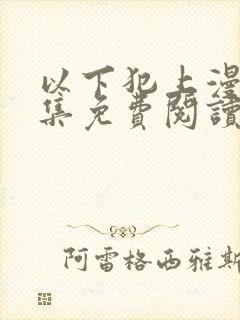 以下犯上漫
集免費閱讀
阿雷格西雅斯